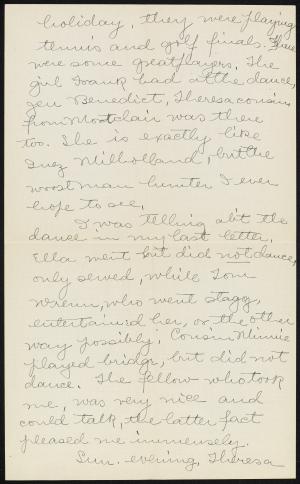 holiday, they were playing
tennis and golf finals. There
were some great players. The
girl Frank had at the dance,
Gen Benedict, Theresa cousin
from Montclair was there
too. She is exactly like
Inez Milholland, but the
worst man hunter I ever
hope to see.
I was telling abt the
dance in my last letter.
Ella went but did not dance,
only served, while Tom
Wrenn, who went stagg,
entertained her, or the other
way possibly. Cousin Minnie
played bridge, but did not
dance. The fellow who took
me, was very nice and
could talk, the latter fact
pleased me immensely.
Sun. evening, Theresa